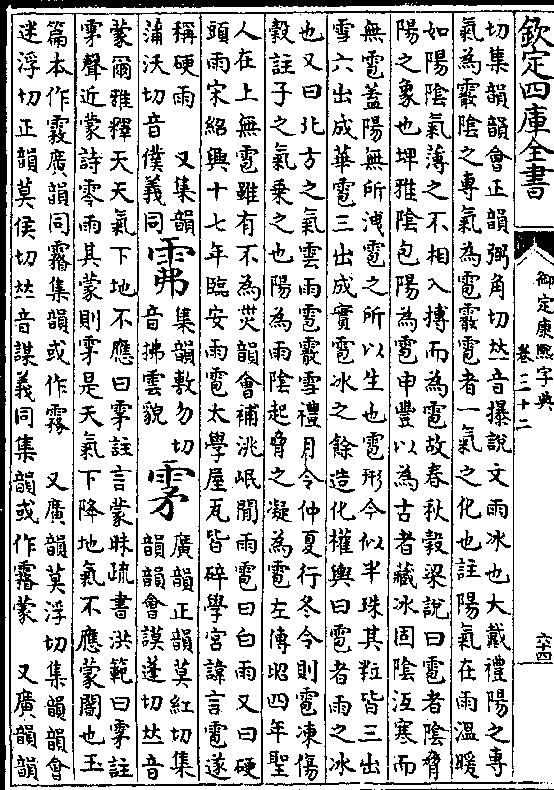 欽定四庫全書
御定康熙字典
卷三十二
六十四
切集韻韻會正韻弼角切𠀤音撲說文雨冰也大戴禮陽之專
氣為霰陰之專氣為雹霰雹者一氣之化也註陽氣在雨溫暖
如陽陰氣薄之不相入摶而為雹故春秋穀梁說曰雹者陰脅
陽之象也埤雅陰包陽為雹申豐以為古者藏冰固陰沍寒而
無雹蓋陽無所洩雹之所以生也雹形今似半珠其粒皆三出
雪六出成華雹三出成實雹冰之餘造化權輿曰雹者雨之冰
也又曰北方之氣雲雨雹霰雪禮月令仲夏行冬令則雹凍傷
穀註子之氣乗之也陽為雨陰起脅之凝為雹左傳昭四年聖
人在上無雹雖有不為災韻會補洮岷閒雨雹曰白雨又曰硬
頭雨宋紹興十七年臨安雨雹太學屋瓦皆碎學宮諱言雹遂
稱硬雨 又集韻
蒲沃切音僕義同
䨚
集韻敷勿切
音拂雲貌
雺
廣韻正韻莫紅切集
韻韻會謨蓬切𠀤音
蒙爾雅釋天天氣下地不應曰雺註言蒙昧疏書洪範曰雺註
雺聲近蒙詩零雨其蒙則雺是天氣下降地氣不應蒙闇也玉
篇本作霚廣韻同霿集韻或作霧 又廣韻莫浮切集韻韻會
迷浮切正韻莫侯切𠀤音謀義同集韻或作霿蒙 又廣韻韻